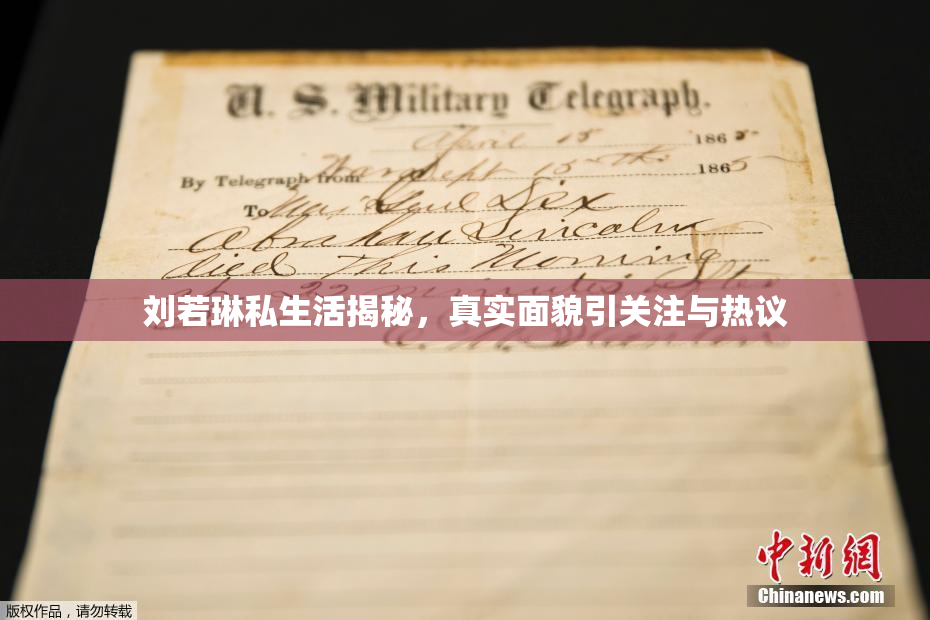 U. S. Military Telegraph.
April 15 1865
By Telegraph from War Dept 15th 1865
To Maj Genl Dix
Abraham Lincoln
died This Morning
at 22 minutes after
刘若琳私生活揭秘，真实面貌引关注与热议
E. M. Stanton
中新网
Chinanews.com
版权作品，请勿转载